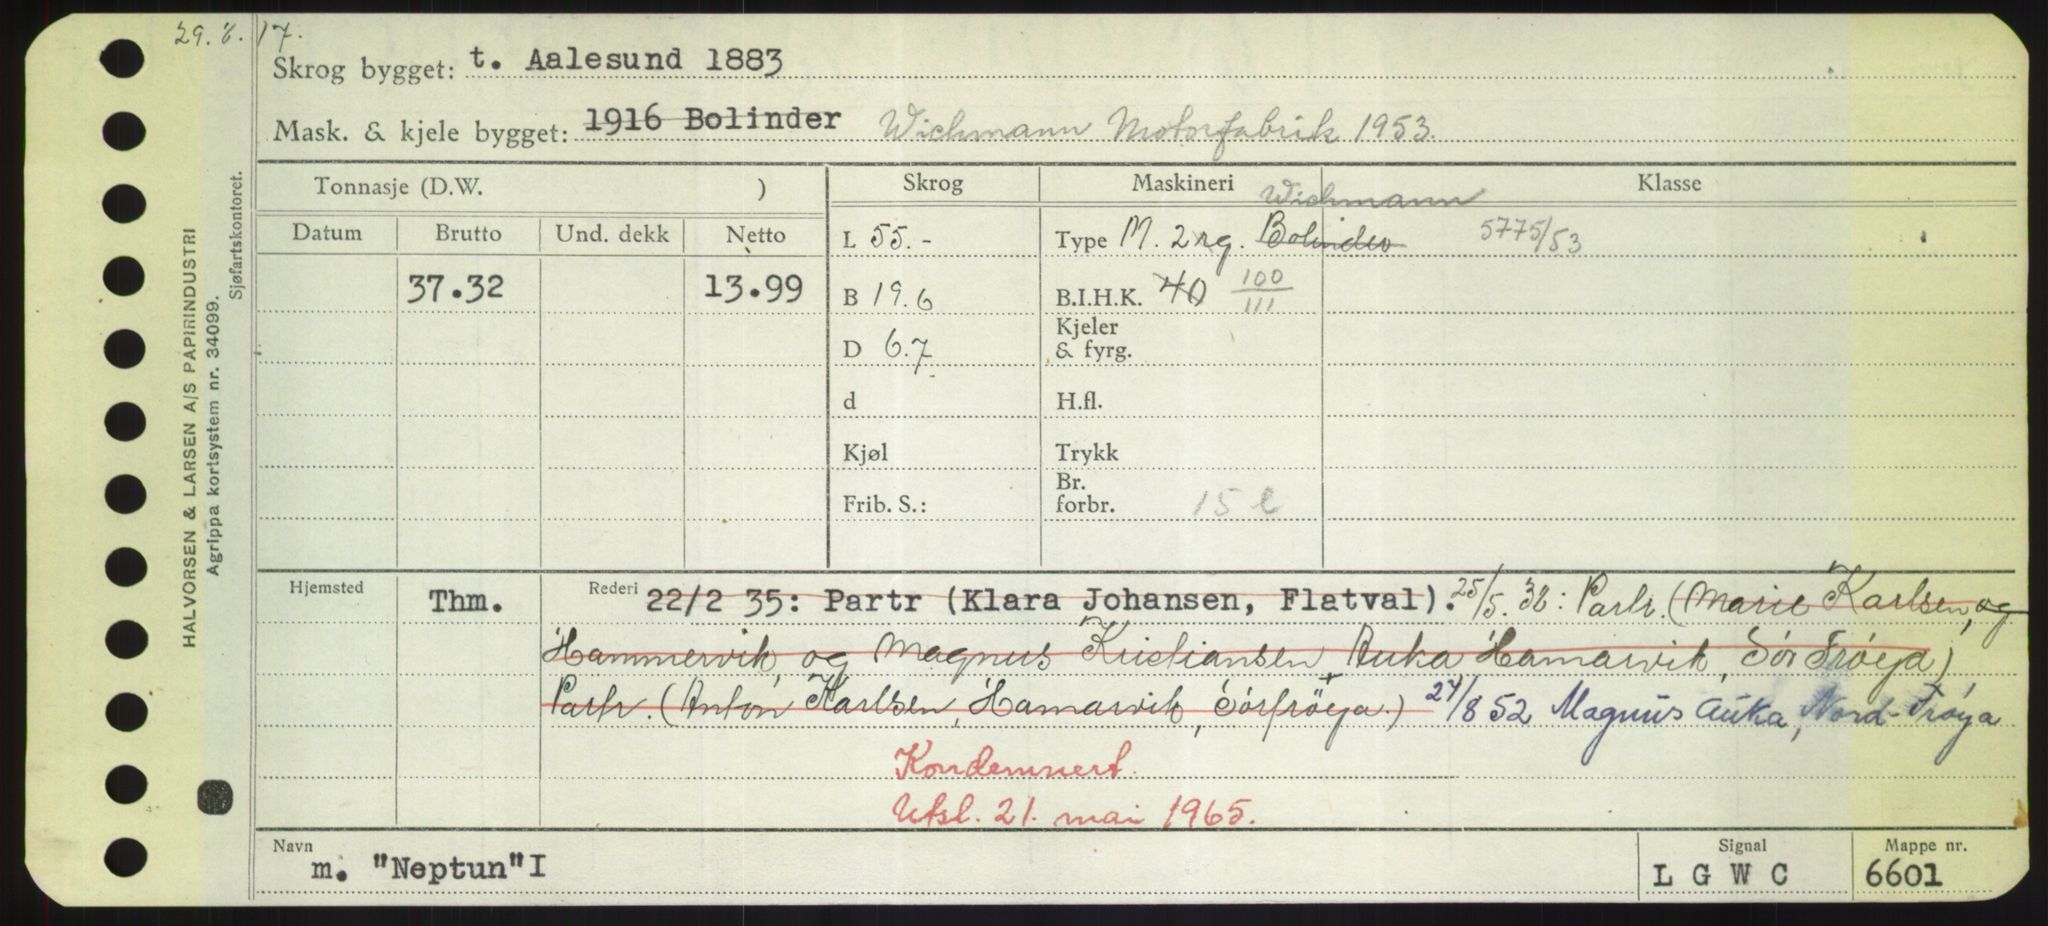 29. 8. 17.
Skrog bygget: t. Aalesund 1883
Mask. & kjele bygget: 1916 Bolinder Wichmann Motorfabrik 1953.
Tonnasje (D.W. ) Skrog Maskineri Klasse
Wichmann
Datum Brutto Und. dekk Netto L 55.- Type M. 2 rg. Bolinder 5775/53
37.32 13.99 B 19.6 B.I.H.K. 40 100/111
D 6.7 Kjeler & fyrg.
d H.fl.
Kjøl Trykk
Frib. S.: Br. forbr. 15 l
Hjemsted Thm. Rederi 22/2 35: Partr (Klara Johansen, Flatval). 25/5. 38: Partr. (Marie Karlsen, og
Hammervik, og Magnus Kristiansen Auka Hamarvik, Sør Frøya)
Partr. (Anton Karlsen, Hamarvik, Sørfrøya.) 27/8 52 Magnus Auka, Nord-Frøya
Kondemnert.
Utsl. 21. mai 1965.
Navn m. "Neptun" I Signal L G W C Mappe nr. 6601
HALVORSEN & LARSEN A/S PAPIRINDUSTRI
Agrippa kortsystem nr. 34099.
Sjøfartskontoret.